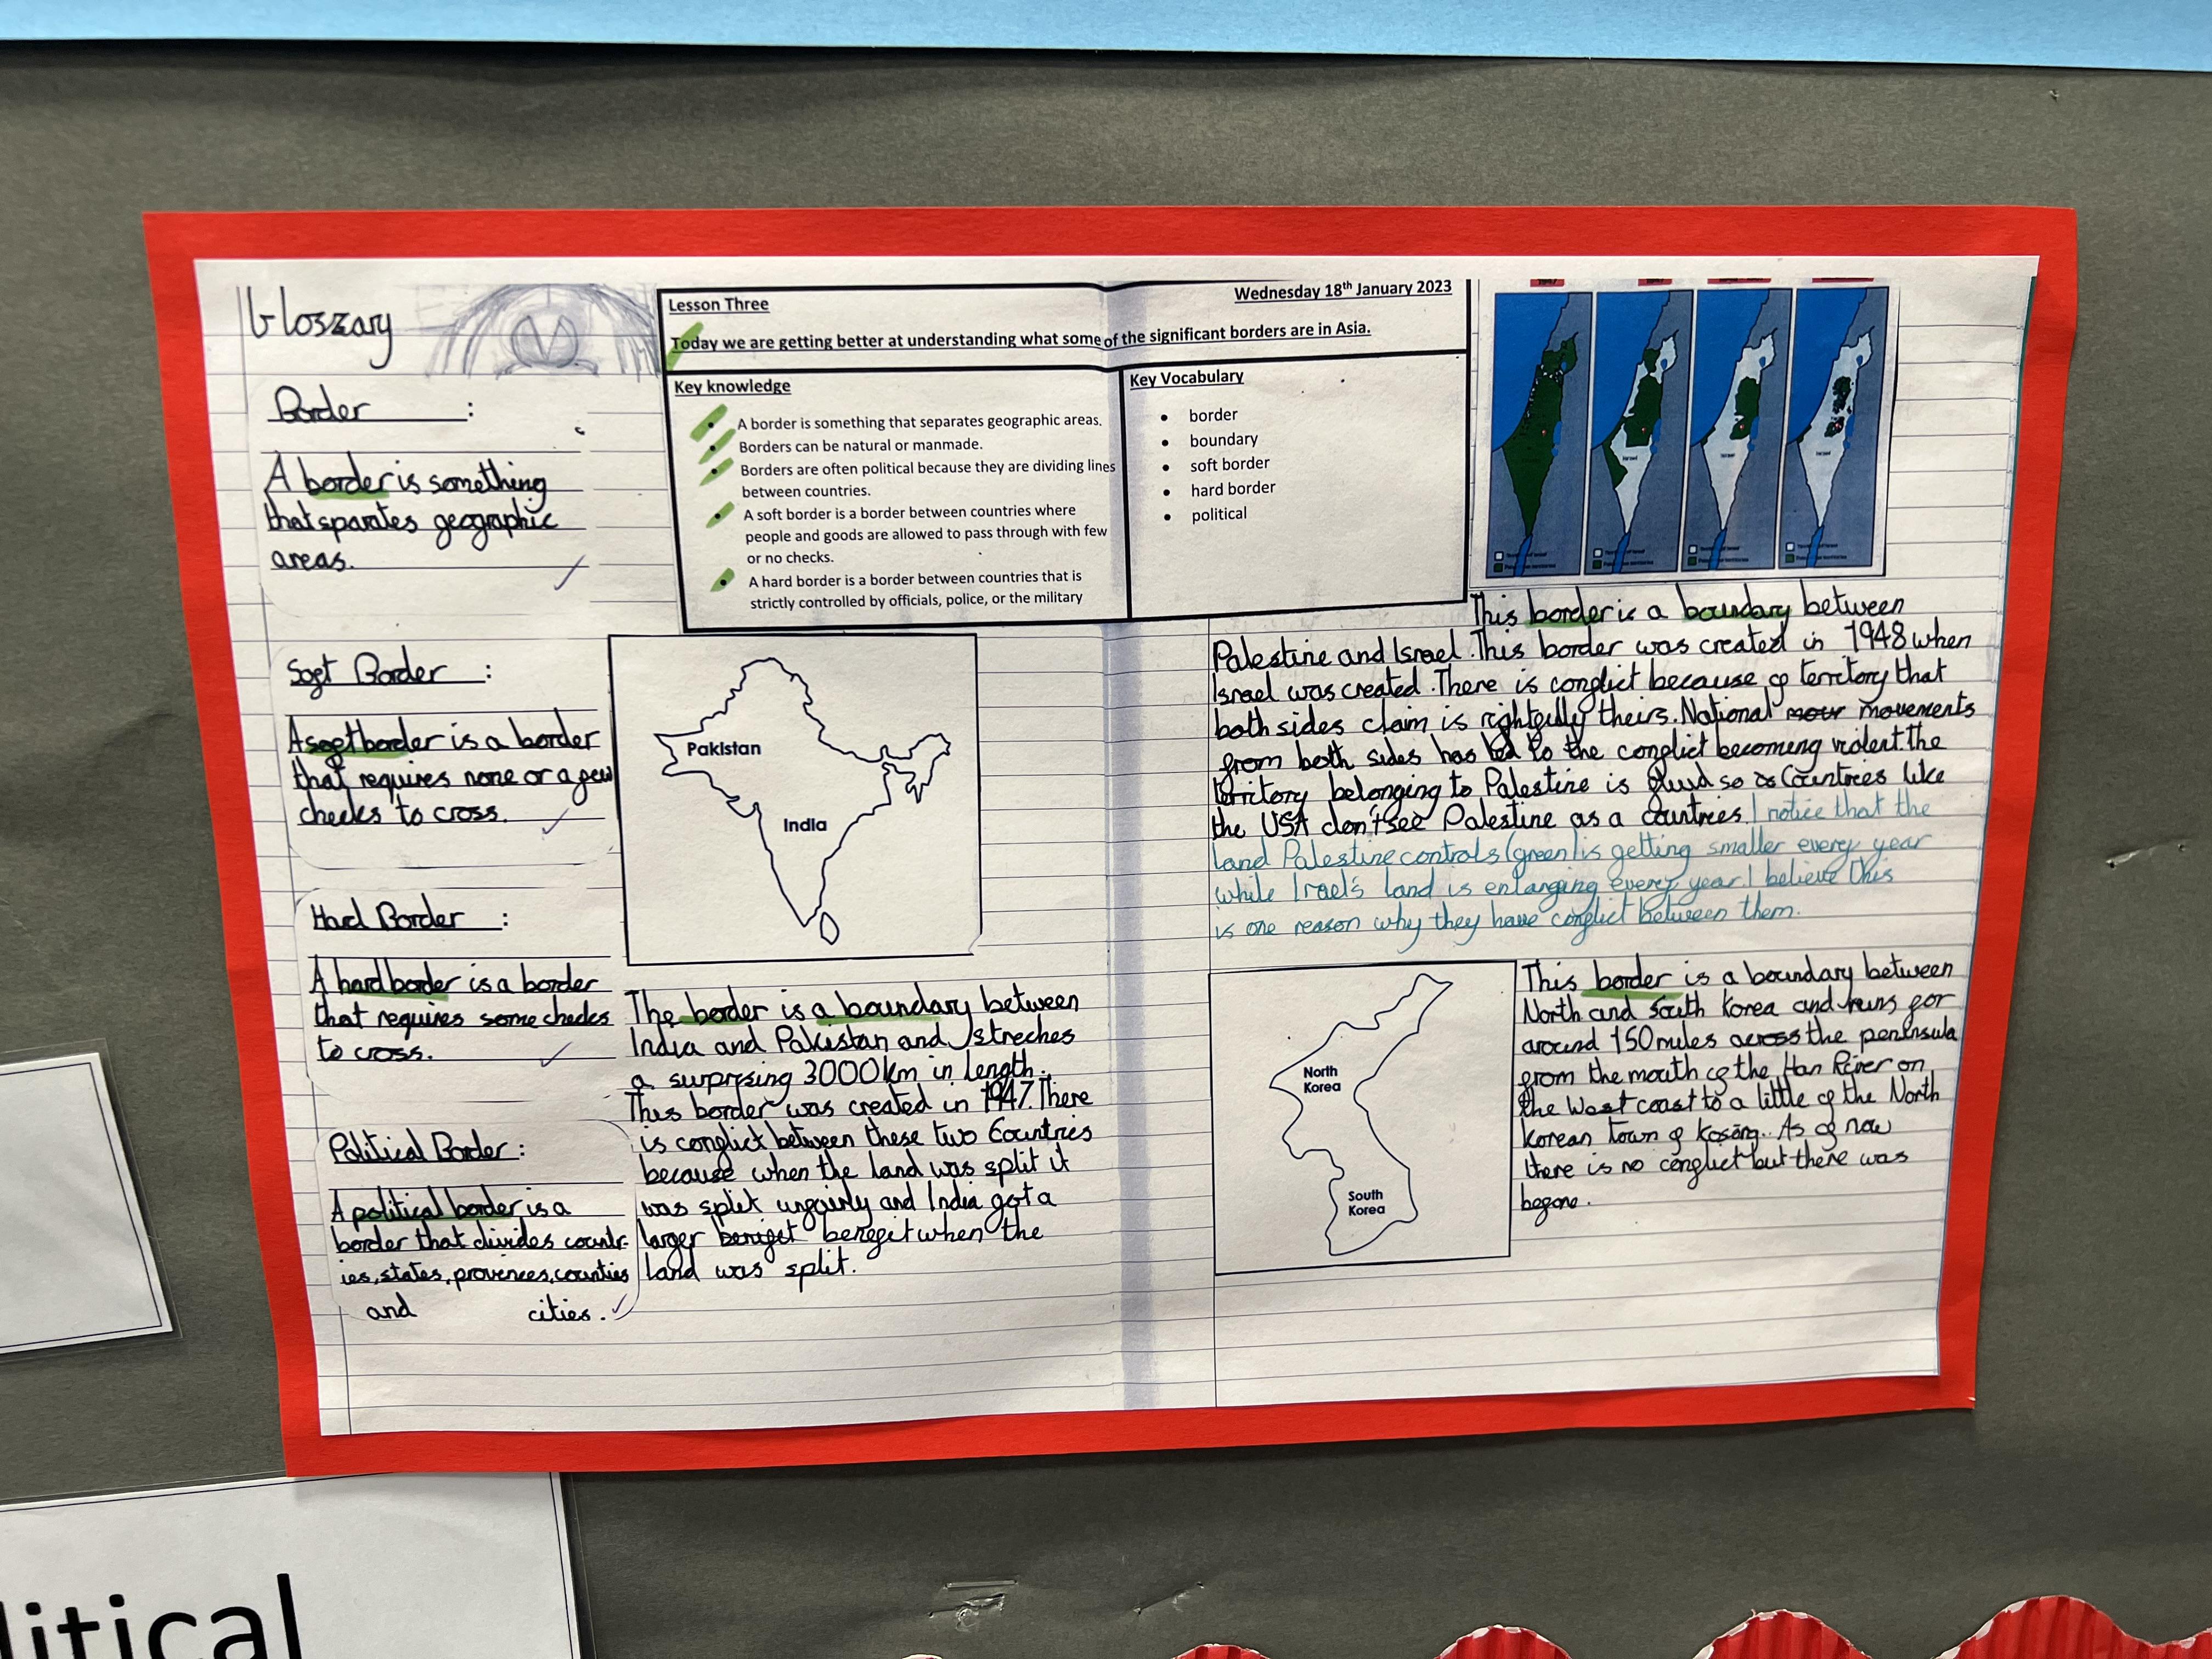 Gloszary
Border :
A border is something
that sparates geographic
areas.
Soft Border :
A soft border is a border
that requires none or a few
checks to cross.
Hard Border :
A hard border is a border
that requires some checks
to cross.
Political Border :
A political border is a
border that divides countr-
ies, states, provences, counties
and cities.
Lesson Three
Wednesday 18th January 2023
Today we are getting better at understanding what some of the significant borders are in Asia.
Key knowledge
• A border is something that separates geographic areas.
• Borders can be natural or manmade.
• Borders are often political because they are dividing lines
between countries.
• A soft border is a border between countries where
people and goods are allowed to pass through with few
or no checks.
• A hard border is a border between countries that is
strictly controlled by officials, police, or the military
Key Vocabulary
• border
• boundary
• soft border
• hard border
• political
Pakistan
India
The border is a boundary between
India and Pakistan and streches
a surprising 3000km in length.
This border was created in 1947. There
is conflict between these two Countries
because when the land was split it
was split unfairly and India got a
larger benifet benefit when the
land was split.
This border is a boundary between
Palestine and Israel. This border was created in 1948 when
Israel was created. There is conflict because of territory that
both sides claim is rightfully theirs. National mour movements
from both sides has led to the conflict becoming violent. the
territory belonging to Palestine is fluid so Countries like
the USA don't see Palestine as a countries. I notice that the
land Palestine controls (green) is getting smaller every year
while Irael's land is enlarging every year. I believe this
is one reason why they have conflict between them.
North
Korea
South
Korea
This border is a boundary between
North and South Korea and runs for
around 150 miles across the peninsula
from the mouth of the Han River on
the West coast to a little of the North
Korean town of Kosong. As of now
there is no conflict but there was
before.
litical